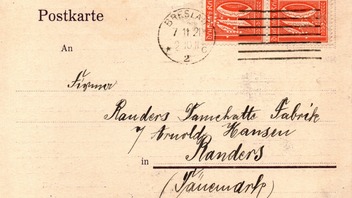 Postkarte
BRESLAU
7 11 21
An
2
Firma
Randers Damehatte Fabrik
7 Arnold Hansen
in Randers
(Dänemark)